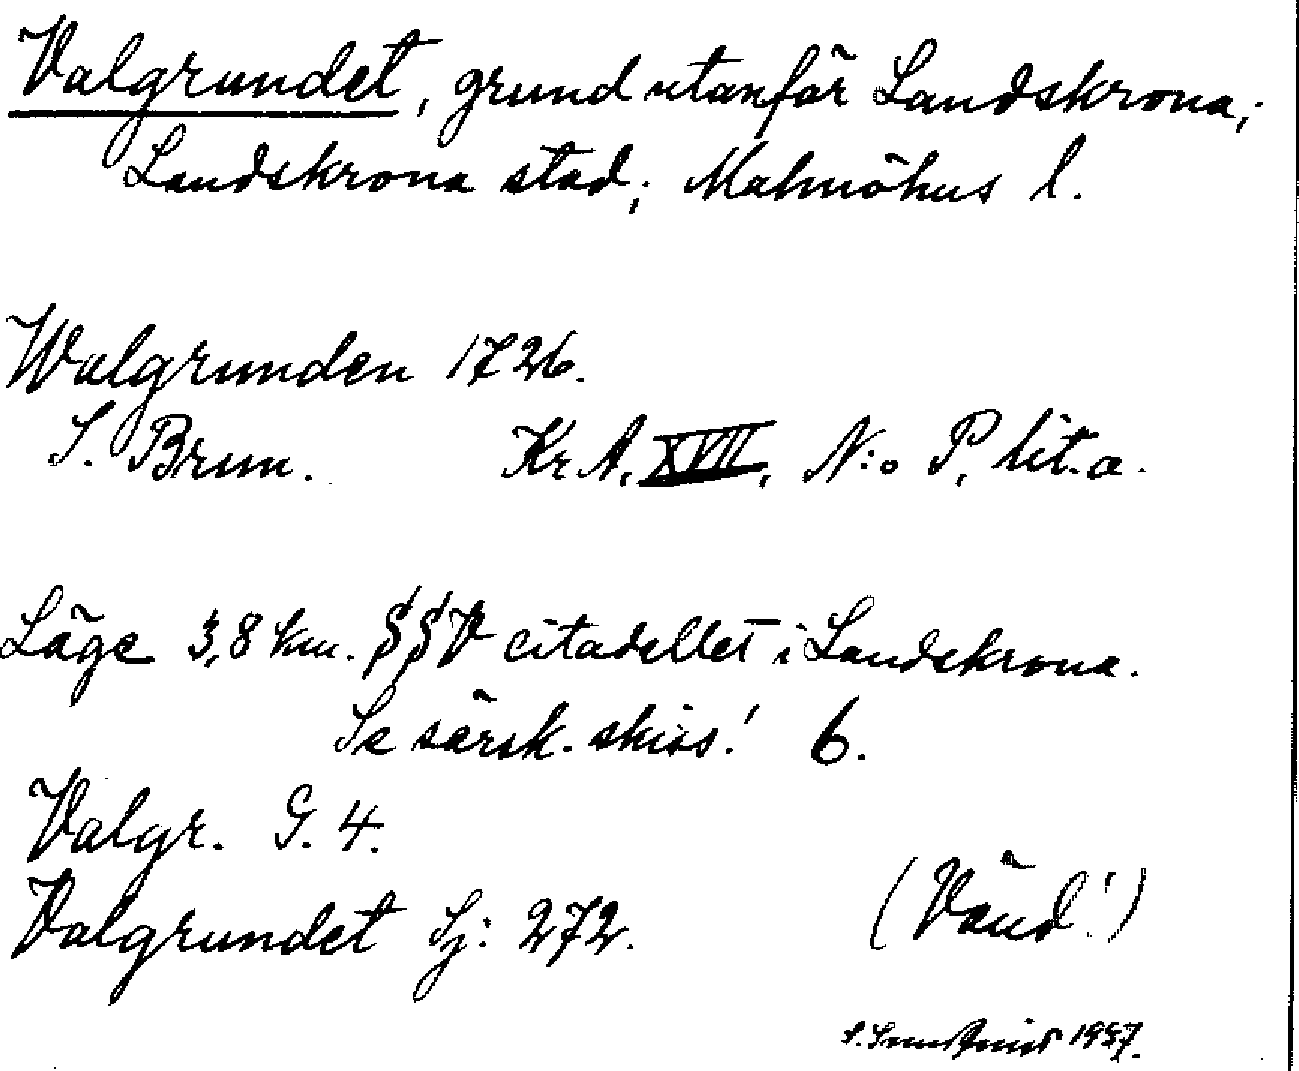 Valgrundet, grund utanför Landskrona;
Landskrona stad; Malmöhus l.
Walgrunden 1726.
S. Brun. Kr. A. XVII, N:o P, lit. a.
Läge 3,8 km. SSV citadellet i Landskrona.
Se särsk. skiss! 6.
Valgr. G. 4.
Valgrundet Sj: 272.
(Vänd!)
1937.